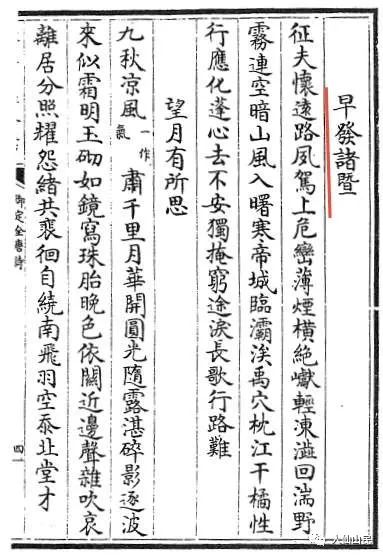 早發諸曁
征夫懷遠路夙駕上危巒薄煙橫絶巘輕凍澁回湍野
霧連空暗山風入曙寒帝城臨灞涘禹穴枕江干橘性
行應化蓬心去不安獨掩窮途淚長歌行路難
望月有所思
九秋凉風一作氣肅千里月華開圓光隨露湛碎影逐波
來似霜明玉砌如鏡寫珠胎晚色依關近邊聲雜吹哀
離居分照耀怨緒共裵徊自繞南飛羽空忝北堂才
御定全唐詩
四